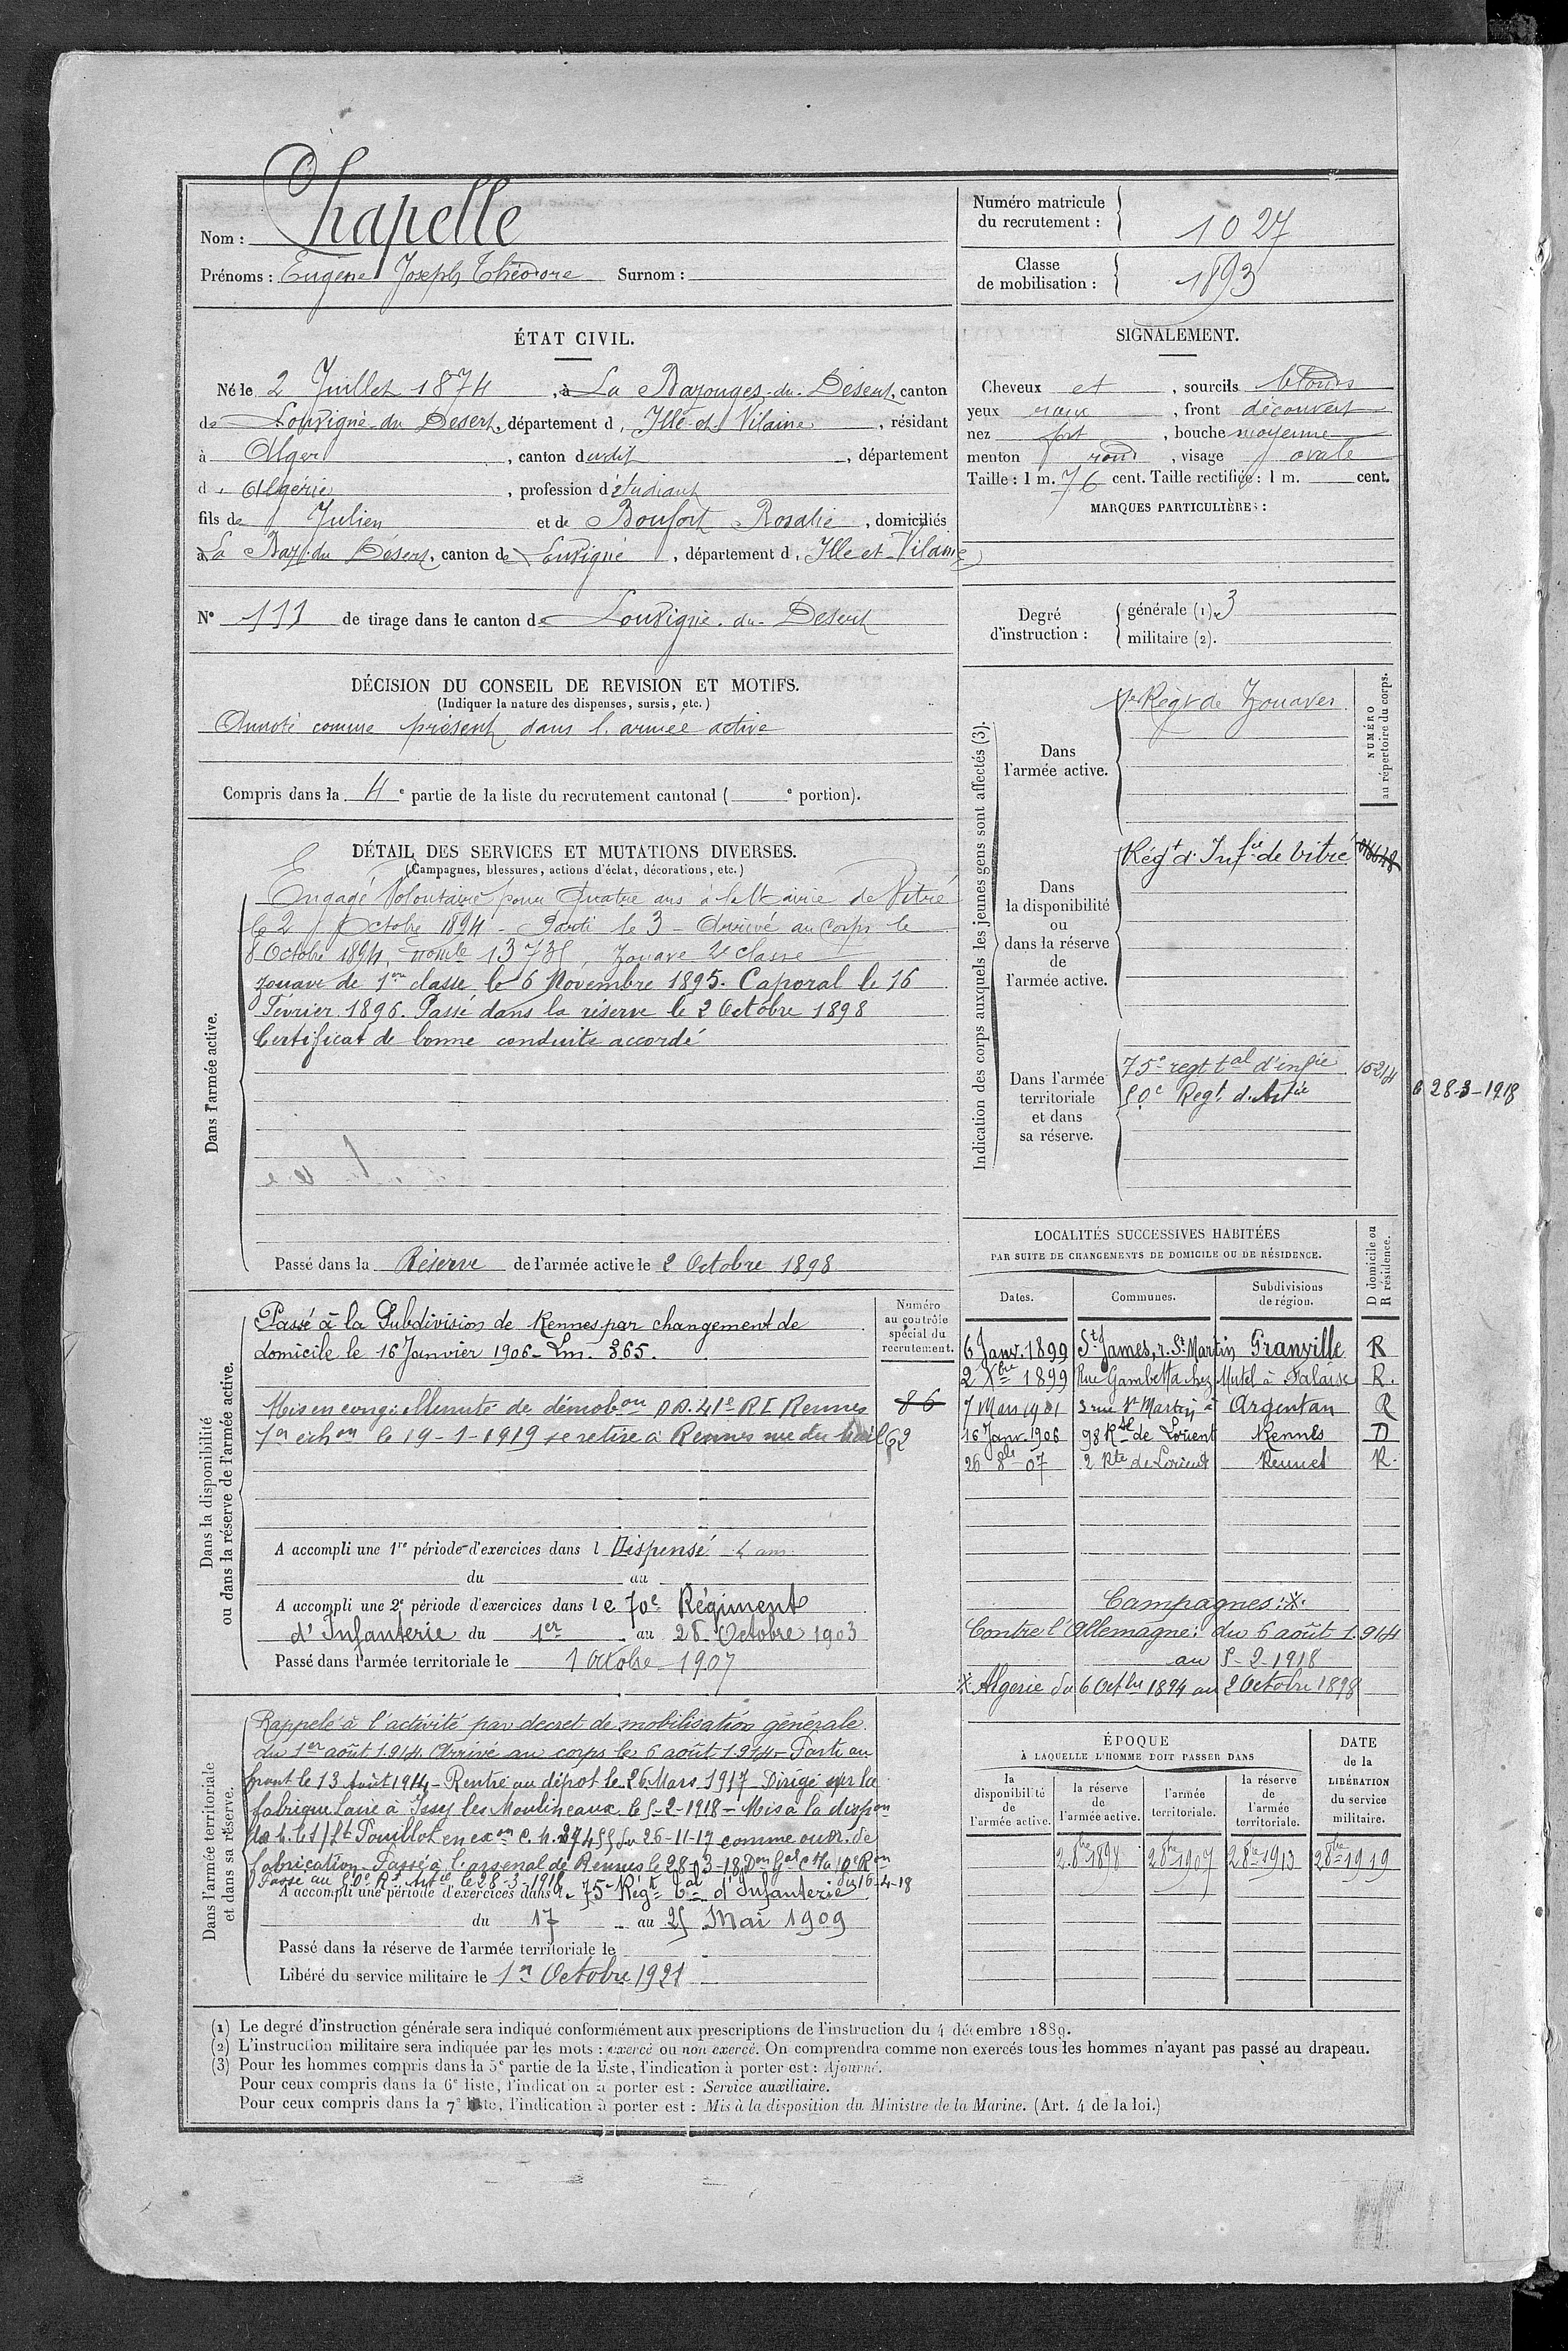 Nom : Chapelle
Prénoms : Eugène Joseph Théodore Surnom :
Numéro matricule
du recrutement : 1027
Classe
de mobilisation : 1893
ÉTAT CIVIL.
Né le 2 Juillet 1874, à La Bazouges-du-Désert, canton
de Louvigné-du Désert, département d'Ille-et-Vilaine, résidant
à Alger, canton dudit, département
d'Algérie, profession d'étudiant
fils de Julien et de Boufort Rosalie, domiciliés
à La Baz. du Désert, canton de Louvigné, département d'Ille et-Vilaine
N° 111 de tirage dans le canton de Louvigné-du-Désert
SIGNALEMENT.
Cheveux et, sourcils blonds
yeux, front découvert
nez fort, bouche moyenne
menton rond, visage ovale
Taille : 1 m. 76 cent. Taille rectifiée : 1 m. cent.
MARQUES PARTICULIÈRES :
Degré
d'instruction :
générale (1). 3
militaire (2).
DÉCISION DU CONSEIL DE REVISION ET MOTIFS.
(Indiquer la nature des dispenses, sursis, etc.)
Annoté comme présent dans l'armée active
Compris dans la 4e partie de la liste du recrutement cantonal ( e portion).
DÉTAIL DES SERVICES ET MUTATIONS DIVERSES.
(Campagnes, blessures, actions d'éclat, décorations, etc.)
Dans l'armée active.
Engagé Volontaire pour Quatre ans à la Mairie de Vitré
le 2 Octobre 1894 - Parti le 3 - Arrivé au Corps le
8 Octobre 1894, 1373, Zouave 2e classe
zouave de 1ere classe le 6 Novembre 1895. Caporal le 16
Février 1896. Passé dans la réserve le 2 Octobre 1898
Certificat de bonne conduite accordé
Passé dans la Réserve de l'armée active le 2 Octobre 1898
Indication des corps auxquels les jeunes gens sont affectés (3).
NUMÉRO
au répertoire du corps.
Dans
l'armée active.
1er Régt de Zouaves
Dans
la disponibilité
ou
dans la réserve
de
l'armée active.
Régt d'Infie de Vitré
Dans l'armée
territoriale
et dans
sa réserve.
75e regt tal d'infie 15214
50e Regt d'Artie
28-3-1918
LOCALITÉS SUCCESSIVES HABITÉES
PAR SUITE DE CHANGEMENTS DE DOMICILE OU DE RÉSIDENCE.
D domicile ou
R résidence.
Dates. Communes. Subdivisions
de région.
6 Janv. 1899 St James, r. St Martin Granville R
2 Xbre 1899 Rue Gambetta chez Mutel à Falaise R.
7 Mars 1901 3 rue St Martin à Argentan R
16 Janv. 1906 98 Rte de Lorient Rennes D
26 8bre 07 2 Rte de Lorient Rennes R.
Campagnes :*
Contre l'Allemagne : du 6 août 1914
au 5-2-1918
* Algérie du 6 Octbre 1894 au 2 Octobre 1898
Dans la disponibilité
ou dans la réserve de l'armée active.
Numéro
au contrôle
spécial du
recrutement.
Passé à la Subdivision de Rennes par changement de
domicile le 16 Janvier 1906 - Lm. 865.
Mis en congé illimité de démobon DD. 41e RI Rennes 86
1er échon le 19-1-1919 se retire à Rennes rue du Mail 62
A accompli une 1re période d'exercices dans l Dispensé 4 ans
du au
A accompli une 2e période d'exercices dans le 70e Régiment
d'Infanterie du 1er au 28 Octobre 1903
Passé dans l'armée territoriale le 1 Octobre 1907
Dans l'armée territoriale
et dans sa réserve.
Rappelé à l'activité par decret de mobilisation générale
du 1er août 1914 Arrivé au corps le 6 août 1914 - Parti au
front le 13 Août 1914 - Rentré au dépôt le 26 Mars 1917 - Dirigé sur la
fabrique Laire à Issy les Moulineaux le 5-2-1918 - Mis à la dispon
Pouillot en exon C. M. 27455 du 26-11-17 comme ouvr. de
fabrication - Passé à l'arsenal de Rennes le 28-03-18 Don Gal 10e Ron
Passé au 50e Rt Artie le 28-3-1918 du 16-4-18
A accompli une période d'exercices dans le 75e Régt Tal d'Infanterie
du 17 au 25 Mai 1909
Passé dans la réserve de l'armée territoriale le
Libéré du service militaire le 1er Octobre 1921
ÉPOQUE
À LAQUELLE L'HOMME DOIT PASSER DANS
la
disponibilité
de
l'armée active.
la réserve
de
l'armée active.
l'armée
territoriale.
la réserve
de
l'armée
territoriale.
DATE
de la
LIBÉRATION
du service
militaire.
2 8bre 1898 2 8bre 1907 2 8bre 1913 2 8bre 1919
(1) Le degré d'instruction générale sera indiqué conformément aux prescriptions de l'instruction du 4 décembre 1889.
(2) L'instruction militaire sera indiquée par les mots : exercé ou non exercé. On comprendra comme non exercés tous les hommes n'ayant pas passé au drapeau.
(3) Pour les hommes compris dans la 5e partie de la liste, l'indication à porter est : Ajourné.
Pour ceux compris dans la 6e liste, l'indication à porter est : Service auxiliaire.
Pour ceux compris dans la 7e liste, l'indication à porter est : Mis à la disposition du Ministre de la Marine. (Art. 4 de la loi.)